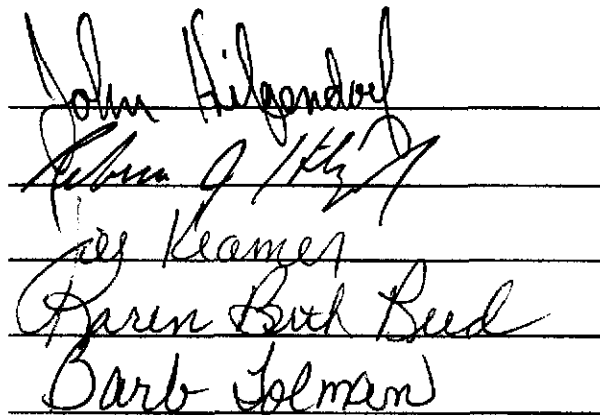 John Hilgendorf
Rebecca J
Kramer
Karen Beth
Barb Tolman